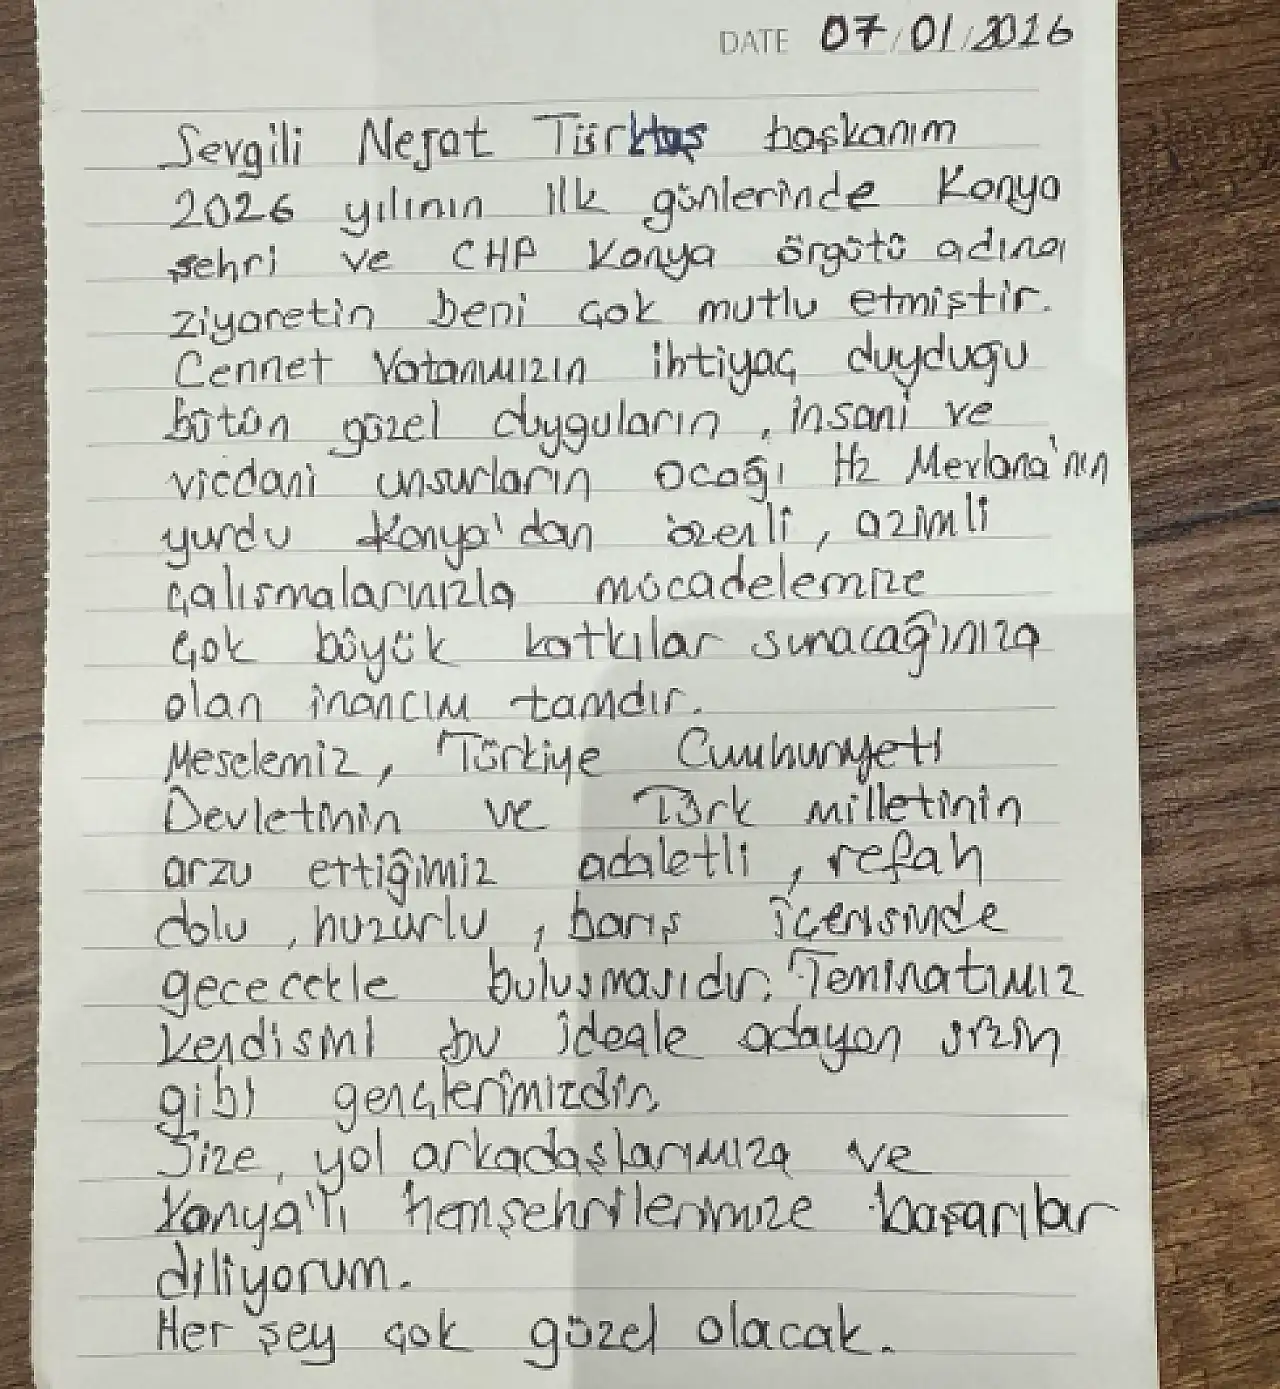 DATE 07/01/2026
Sevgili Nejat Türktaş başkanım
2026 yılının ilk günlerinde Konya
şehri ve CHP Konya örgütü adına
ziyaretin beni çok mutlu etmiştir.
Cennet Vatanımızın ihtiyaç duyduğu
bütün güzel duyguların, insani ve
vicdani unsurların ocağı Hz Mevlana'nın
yurdu Konya'dan özenli, azimli
çalışmalarınızla mücadelemize
çok büyük katkılar sunacağınıza
olan inancım tamdır.
Meselemiz, Türkiye Cumhuriyeti
Devletinin ve Türk milletinin
arzu ettiğimiz adaletli, refah
dolu, huzurlu, barış içerisinde
gelecekle buluşmasıdır. Teminatımız
kendisini bu ideale adayan sizin
gibi gençlerimizdir.
Size, yol arkadaşlarımıza ve
Konya'lı hemşehrilerimize başarılar
diliyorum.
Her şey çok güzel olacak.